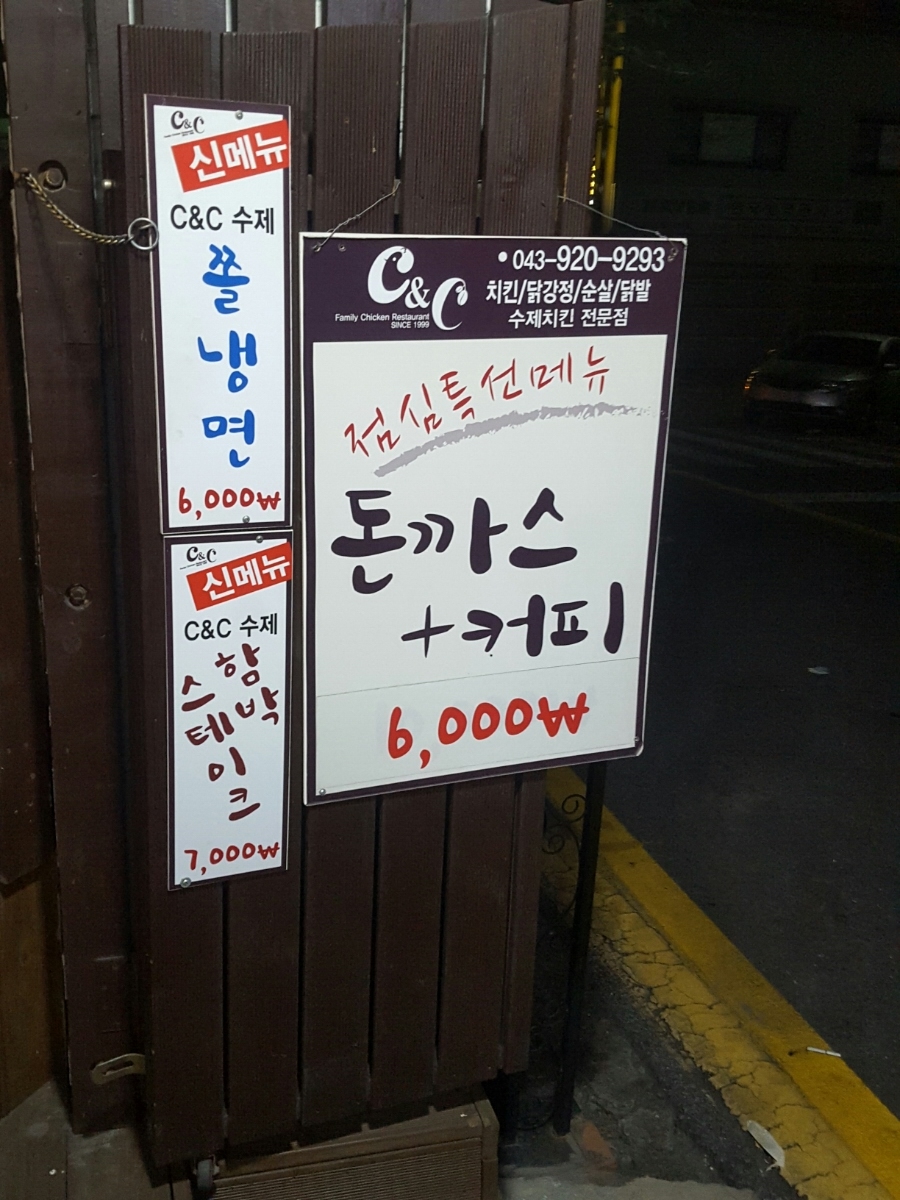 C&C
신메뉴
C&C 수제
쫄
냉
면
6,000₩
C&C
신메뉴
C&C 수제
함박
스테이크
7,000₩
C&C
Family Chicken Restaurant
SINCE 1999
• 043-920-9293
치킨/닭강정/순살/닭발
수제치킨 전문점
점심특선메뉴
돈까스
+커피
6,000₩